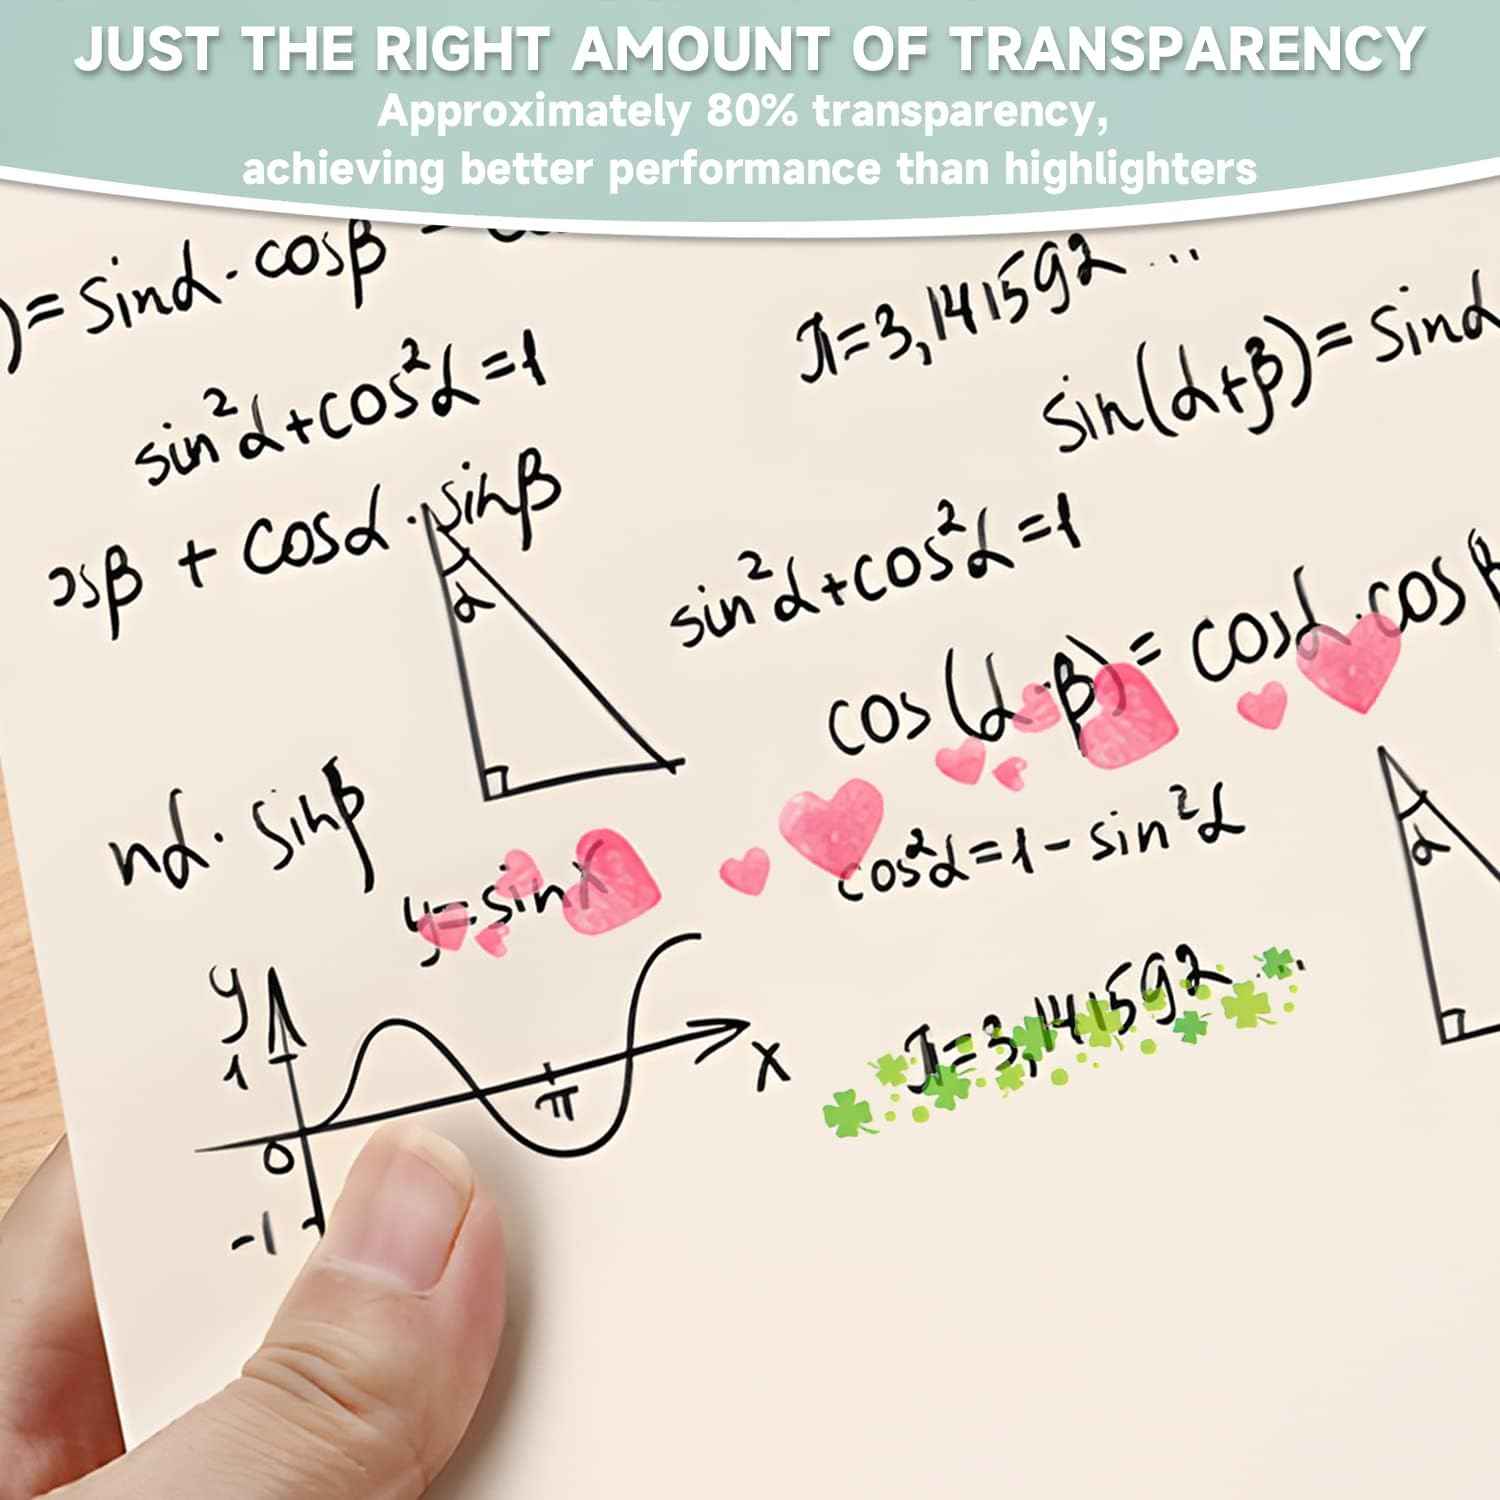 JUST THE RIGHT AMOUNT OF TRANSPARENCY
Approximately 80% transparency,
achieving better performance than highlighters
)= sinα·cosβ -
π=3,141592...
sin(α+β)= sinα
sin²α+cos²α=1
sβ + cosα·sinβ
α
sin²α+cos²α=1
cos(α-β)= cosα·cosβ
nα·sinβ
cos²α=1-sin²α
α
y=sinx
y
1
π
x
0
-1
π=3,141592...